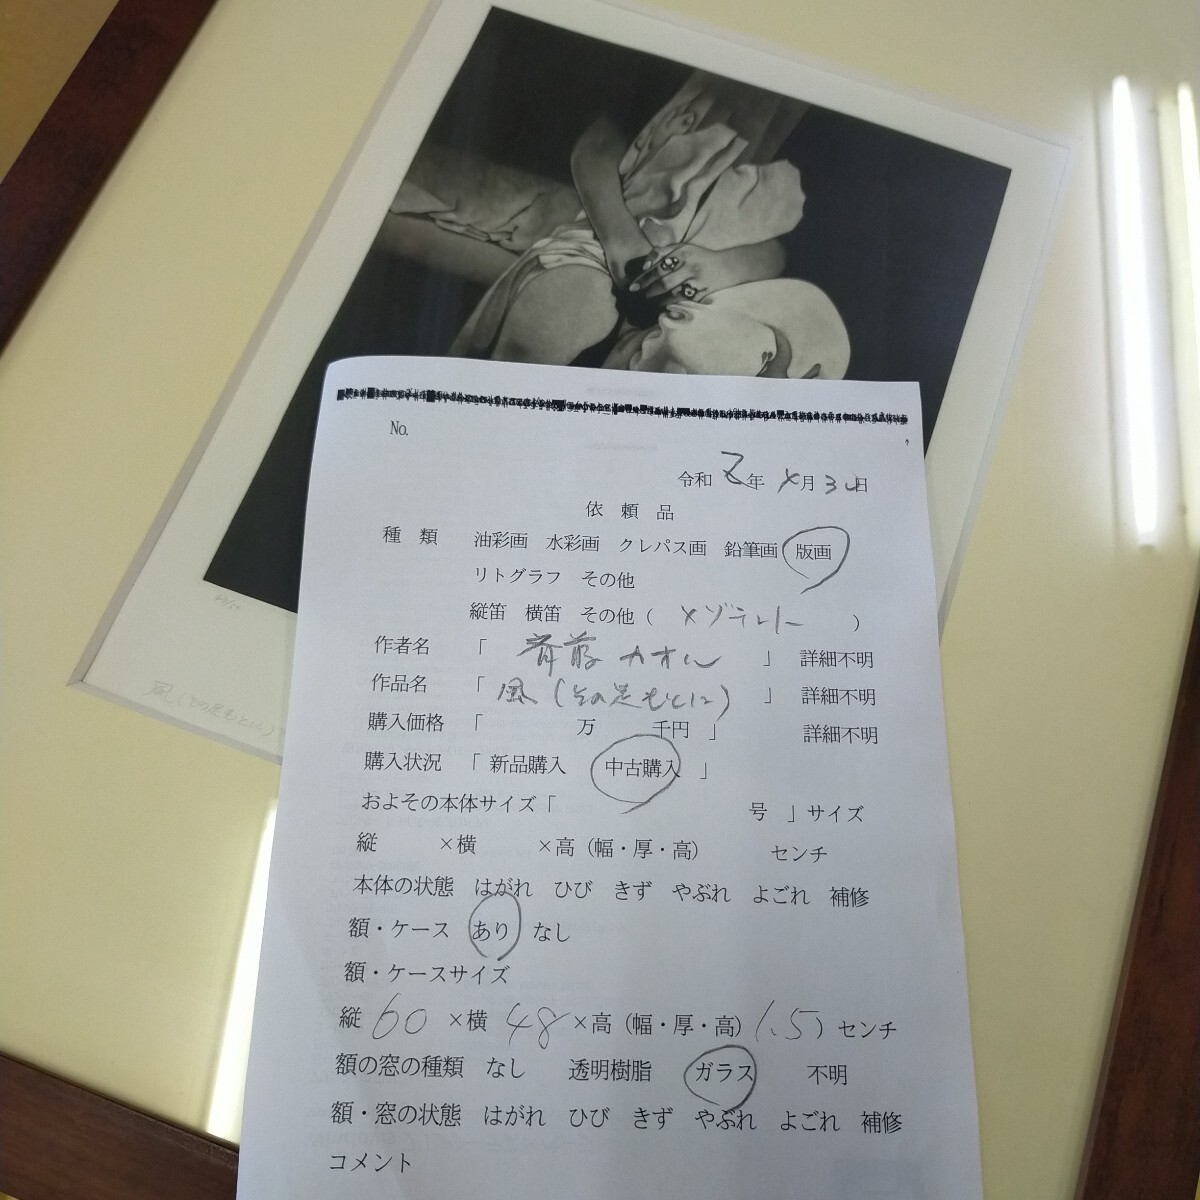 風(その足もとに)
No.
令和 7年 4月 30日
依 頼 品
種 類 油彩画 水彩画 クレパス画 鉛筆画 版画
リトグラフ その他
縦笛 横笛 その他 ( メゾチント )
作者名 「 斉藤カオル 」 詳細不明
作品名 「 風(その足もとに) 」 詳細不明
購入価格 「 万 千円 」 詳細不明
購入状況 「 新品購入 中古購入 」
およその本体サイズ「 号 」サイズ
縦 ×横 ×高(幅・厚・高) センチ
本体の状態 はがれ ひび きず やぶれ よごれ 補修
額・ケース あり なし
額・ケースサイズ
縦 60 ×横 48 ×高(幅・厚・高) 1.5) センチ
額の窓の種類 なし 透明樹脂 ガラス 不明
額・窓の状態 はがれ ひび きず やぶれ よごれ 補修
コメント